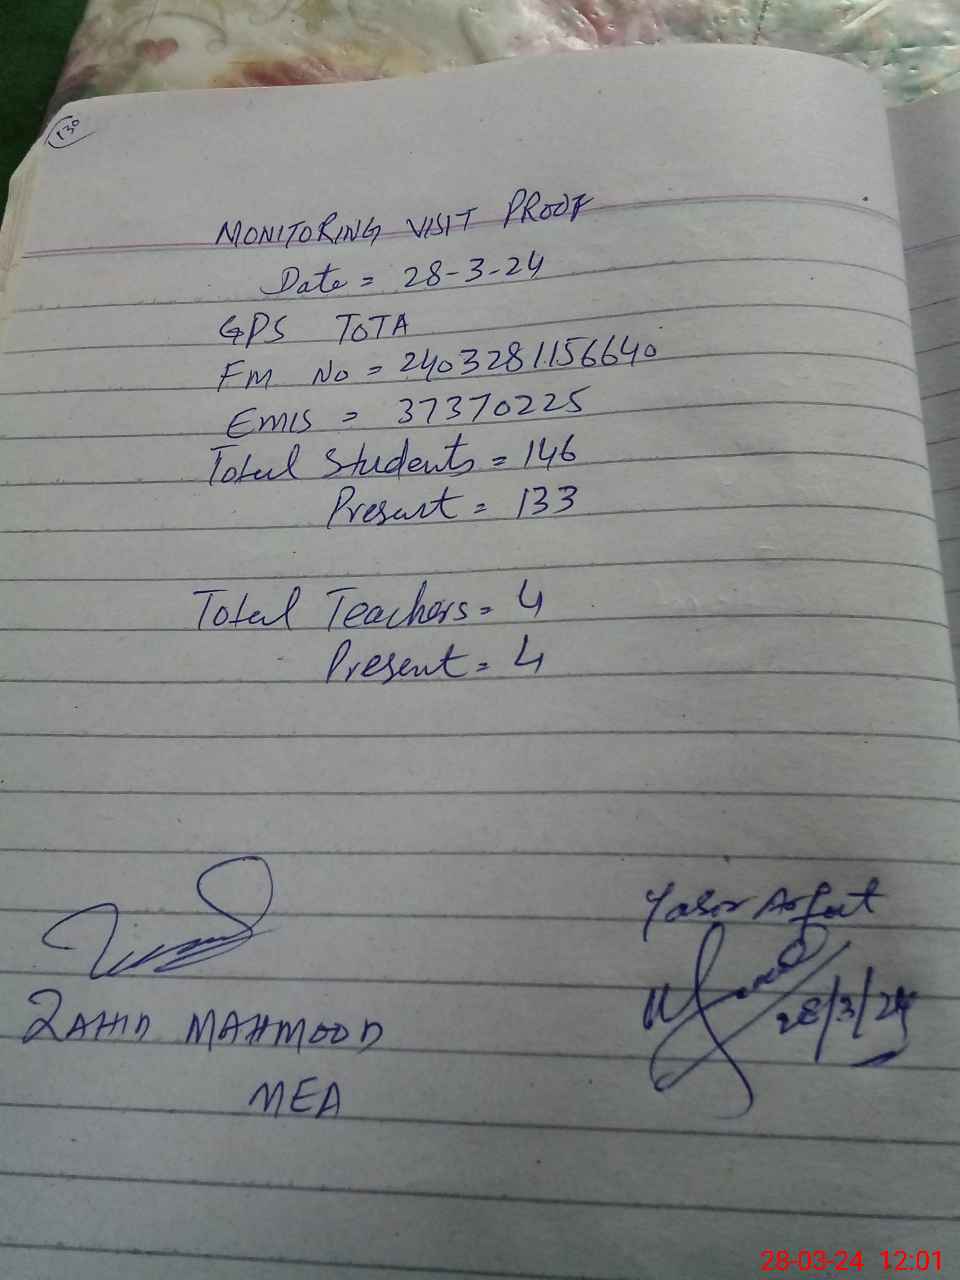 130
MONITORING VISIT PROOF
Date = 28-3-24
GPS TOTA
FM No = 2403281156640
EMIS = 37370225
Total Students = 146
Present = 133
Total Teachers = 4
Present = 4
Yasir Arfat
28/3/24
ZAHID MAHMOOD
MEA
28-03-24 12:01